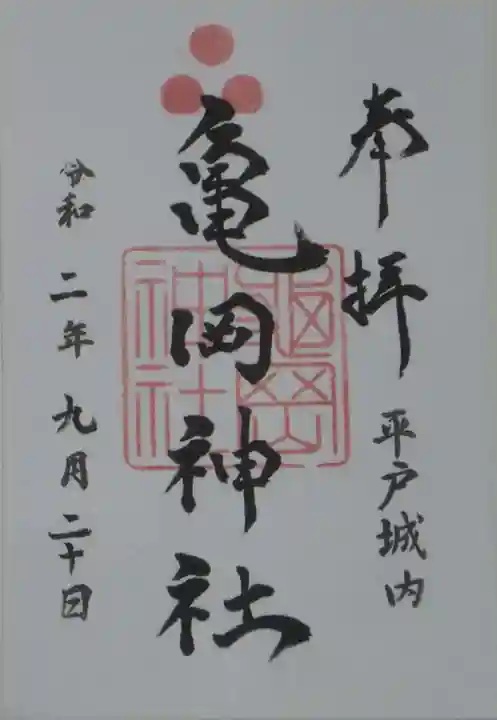 奉拝
平戸城内
亀岡神社
亀岡神社
令和二年九月二十日